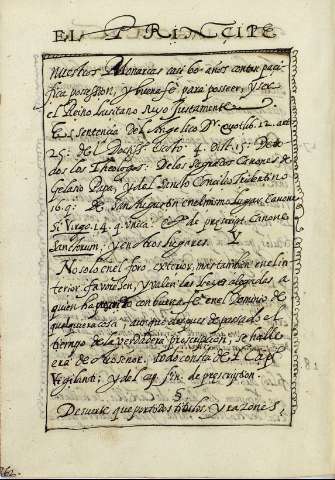 EL PRINCIPE
nuestros Monarcas casi 60 años con tan paci
fica possession, y buena fé para posseer, y ser
el Reino Lusitano suyo justamente.
Es sentencia del Angelico Dr. quolib. 12. art
25; del Scoto 4. dist. 15; De to
dos los Theologos; De los Sagrados Canones de
Gelasio Papa, y del Santo Concilio Tridentino
16. q; De San Augustin en el mismo lugar, Canone
Si Virgo. 14. q. unica: de præscript. Canone
Sanctorum; y en otros lugares.
No solo en el foro exterior, mas tambien en el in
terior favorecen, y valen las leyes alegadas a
quien ha con buena fé en el Dominio de
qualquiera cosa; aunque despues de passado el
tiempo de la verdadera prescripcion, se halle
era de otro señor. Todo consta de L Capl
Vigilanti; y del cap. fin. de prescrypson.
§
De suerte que por todos titulos, y razones,